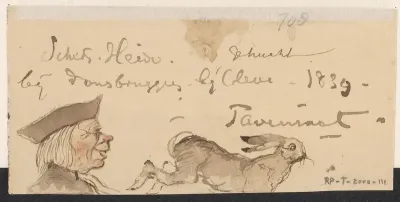 708
Schets. Heide. Gehucht
bij Donsbruggen bij Cleve - 1839 -
Tavenraat -
RP-T-2000-111